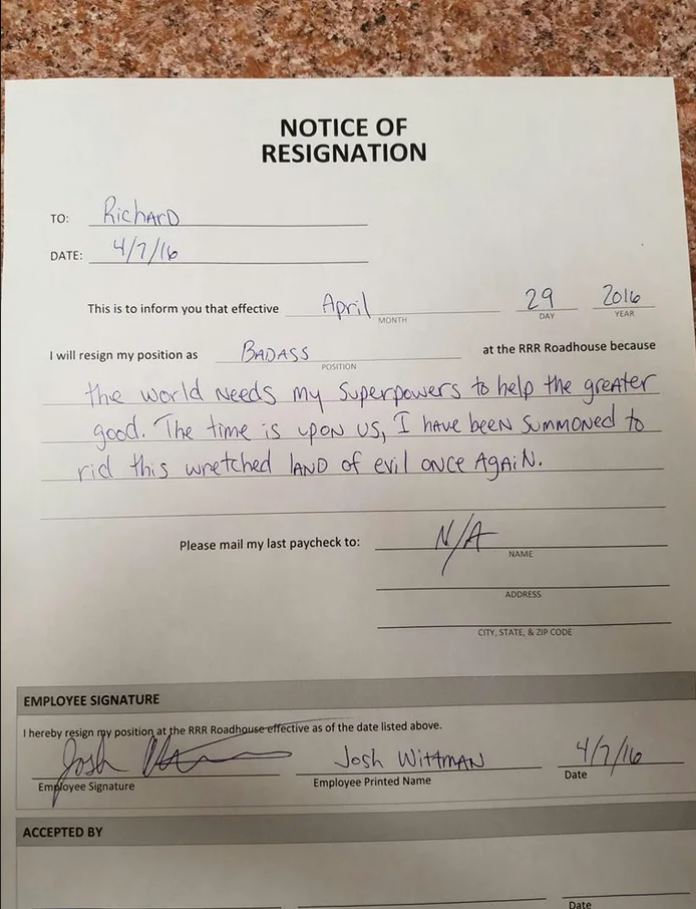 NOTICE OF
RESIGNATION
TO: Richard
DATE: 4/7/16
This is to inform you that effective April 29 2016
MONTH DAY YEAR
I will resign my position as BADASS at the RRR Roadhouse because
POSITION
the world needs my superpowers to help the greater
good. The time is upon us, I have been summoned to
rid this wretched land of evil once again.
Please mail my last paycheck to: N/A
NAME
ADDRESS
CITY, STATE, & ZIP CODE
EMPLOYEE SIGNATURE
I hereby resign my position at the RRR Roadhouse effective as of the date listed above.
Josh Josh Wittman 4/7/16
Employee Signature Employee Printed Name Date
ACCEPTED BY
Date